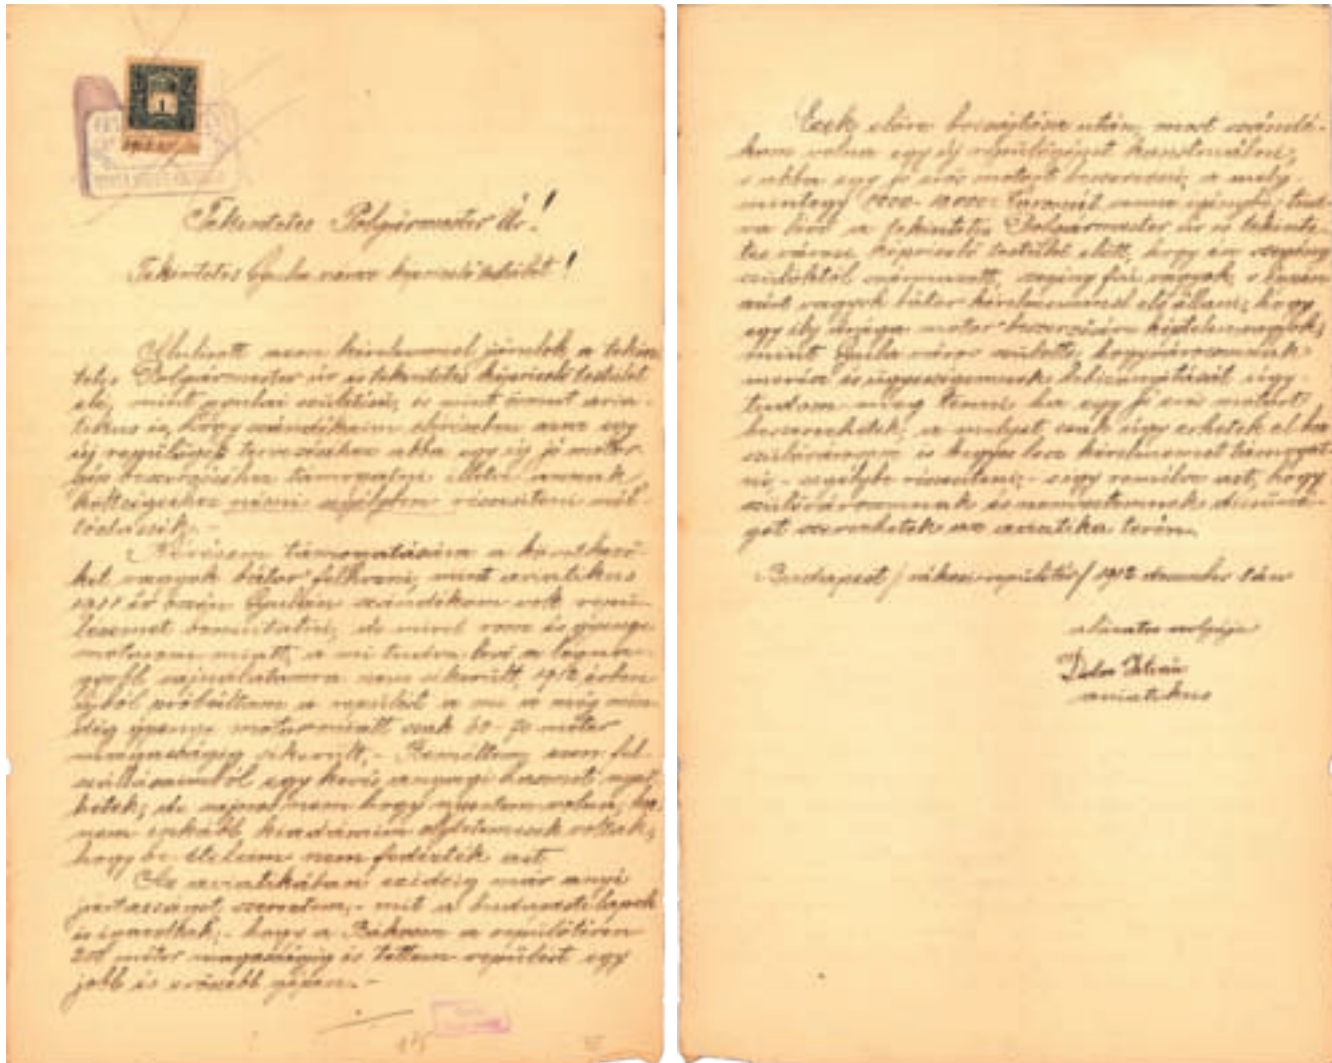 1
Tekintetes Polgármester Úr!
Tekintetes Gyula város képviselő testület!
Alulírott azon kérelemmel járulok a tekin
tetes Polgármester úr és tekintetes képviselő testület
elé, mint gyulai születésű, és mint
is, hogy szándékaim elérésében azaz egy
új repülőgép tervezéséhez abba egy új jó motor
beszerzéséhez támogatni illetve annak
költségeihez némi segélyben részesíteni mél
tóztassék. -
Kérésem támogatására a következő
ket vagyok bátor felhozni, mint aviatikus
1911 év őszén Gyulán szándékom volt repü
lésemet bemutatni, de mivel rossz és gyenge
motorom miatt, a mi tudva levő a legna
gyobb sajnálatomra nem sikerült, 1912 évben
újból próbáltam a repülést a mi is még min
dég gyenge motor miatt csak 60-70 méter
magasságig sikerült. - Reméltem ezen fel
szállásaimból egy kevés anyagi hasznot
de sajnos nem hogy nyertem volna, ha
nem inkább kiadásaim voltak,
hogy be vételeim nem fedezték azt.
Az aviatikában ezideig már anyi
jártasságot szereztem, - mit a budapesti lapok
is igazoltak, - hogy a Rákosi repülőtéren
200 méter magasságig is tettem repülést egy
jobb és erősebb gépen. -
Ezek előre bocsájtása után, most szándé-
kom volna egy új repülőgépet konstruálni,
s abba egy jó erős motort beszerezni, a mely
mintegy koronát venne igénybe, tud
va lévő a tekintetes Polgármester úr és tekinte-
tes városi képviselő testület előtt, hogy én szegény
szülőktől származott, szegény fiú vagyok, s
azért vagyok bátor kérelmemmel elő állani, hogy
egy ily drága motor beszerzésére képtelen vagyok,
mint Gyula város szülötte, hogy városomnak
és ügyességemnek bebizonyítását úgy
tudom meg tenni, ha egy jó erős motort
beszerezhetek, a melyet csak úgy érhetek el ha
szülővárosom is kegyes lesz kérelmemet támogat
ni, - segélybe részesíteni, - s így remélve azt, hogy
szülővárosomnak és nemzetemnek dicsősé-
get szerezhetek az aviatika terén.
Budapest / rákosi repülőtér / 1912 december
alázatos szolgája
István
aviatikus